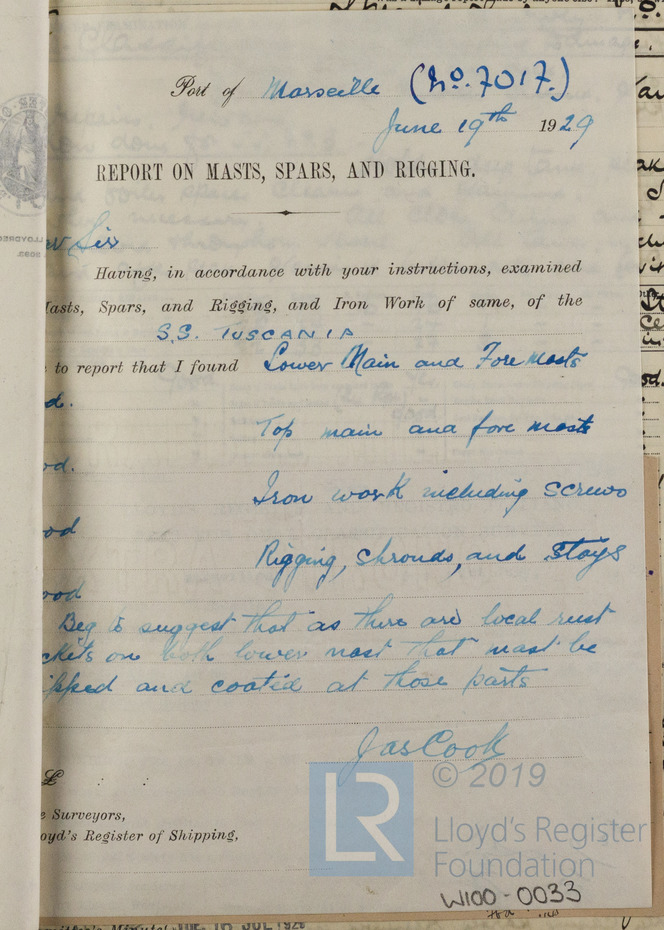 Port of Marseille (No. 7017.)
June 19th 1929
REPORT ON MASTS, SPARS, AND RIGGING.
Sir
Having, in accordance with your instructions, examined
asts, Spars, and Rigging, and Iron Work of same, of the
S.S. TUSCANIA
to report that I found Lower Main and Fore masts
d.
Top main and fore masts
od.
Iron work including screws
od
Rigging, shrouds, and stays
ood
Beg to suggest that as there are local rust
ckets on both lower mast that mast be
pped and coated at those parts
Jas Cook
£ : :
e Surveyors,
oyd's Register of Shipping,
LR
© 2019
Lloyd's Register
Foundation
W100-0033